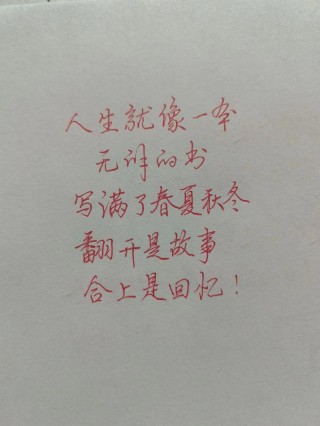 人生就像一本
无 的书
写满了春夏秋冬
翻开是故事
合上是回忆！